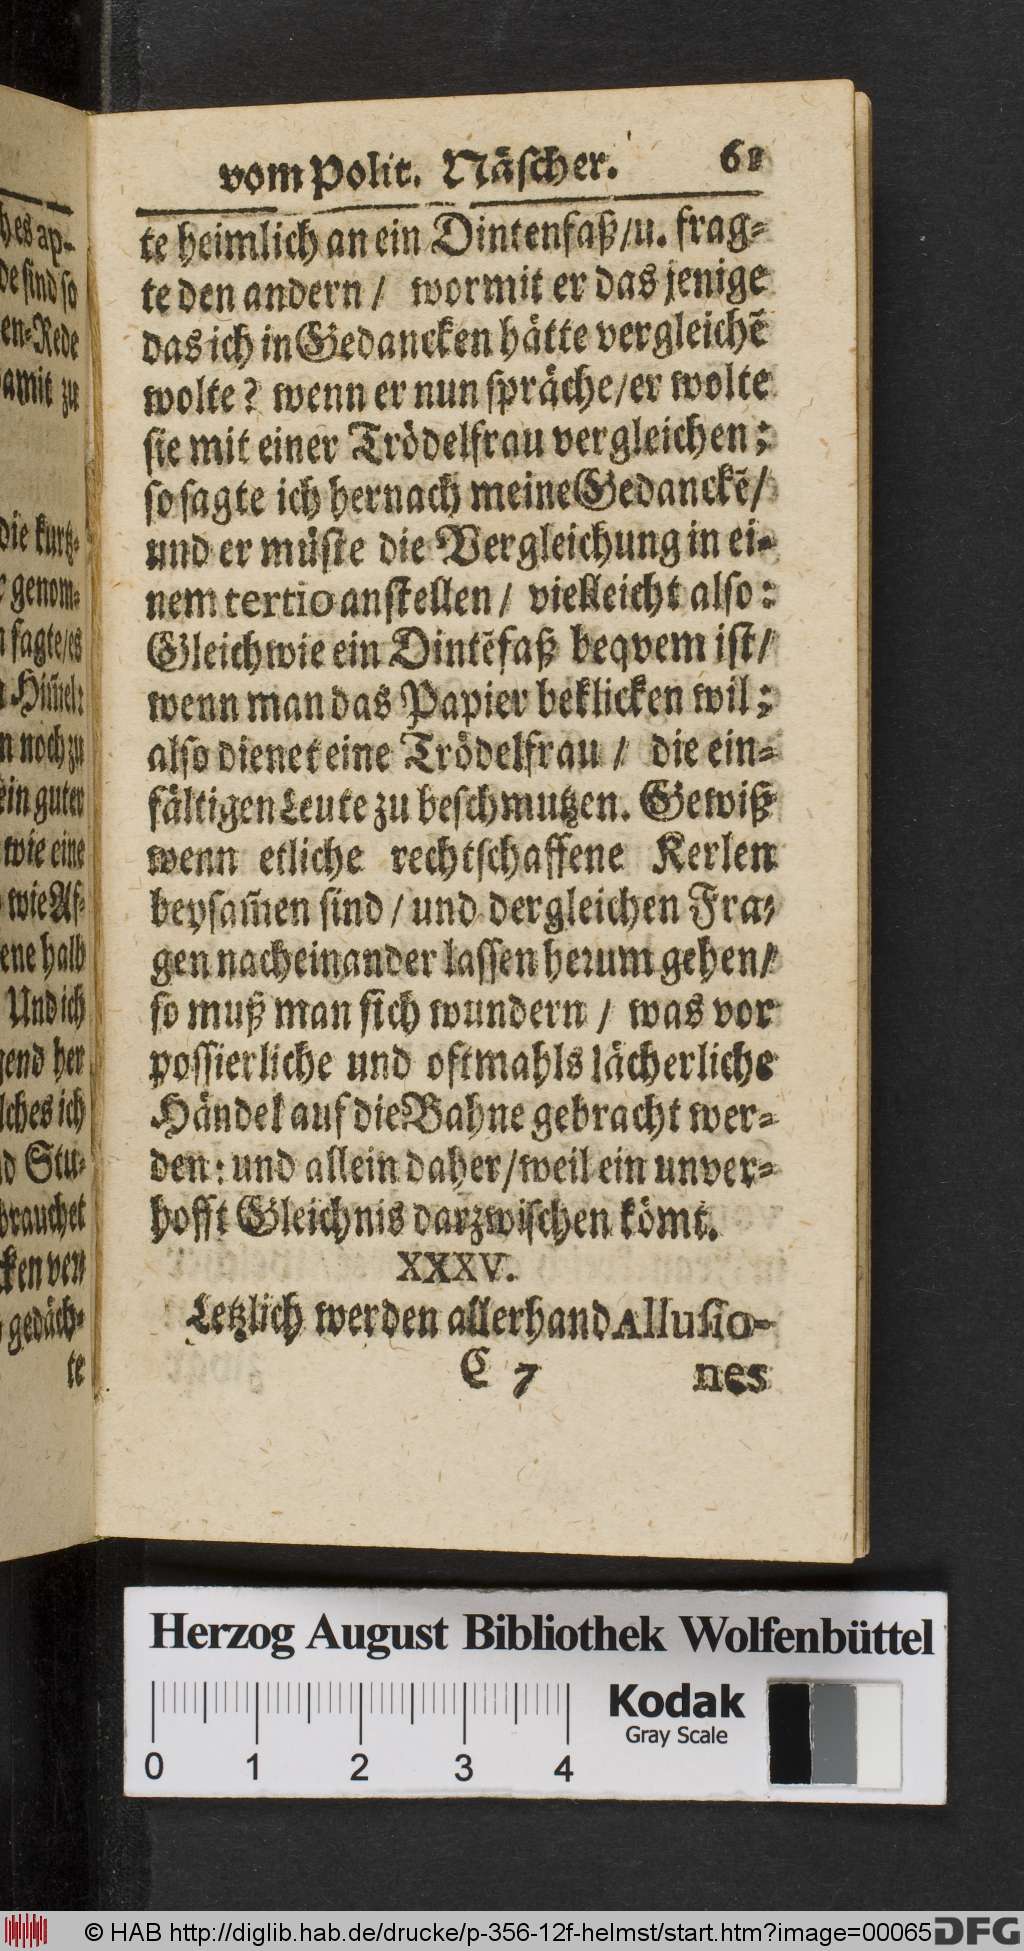 vom Polit. Näscher. 61
te heimlich an ein Dintenfaß/u. frag-
te den andern / wormit er das jenige
das ich in Gedancken hätte vergleichē
wolte? wenn er nun spräche/er wolte
sie mit einer Trödelfrau vergleichen;
so sagte ich hernach meine Gedanckē/
und er müste die Vergleichung in ei-
nem tertio anstellen / vielleicht also:
Gleich wie ein Dintēfaß beqvem ist/
wenn man das Papier beklicken wil;
also dienet eine Trödelfrau / die ein-
fältigen Leute zu beschmutzen. Gewiß
wenn etliche rechtschaffene Kerlen
beysam̃en sind / und dergleichen Fra-
gen nacheinander lassen herum gehen/
so muß man sich wundern / was vor
possierliche und oftmahls lächerliche
Händel auf die Bahne gebracht wer-
den: und allein daher/weil ein unver-
hofft Gleichnis darzwischen kömt.
XXXV.
Letzlich werden allerhand Allusio-
C 7 nes
hes ap-
de sind so
en-Rede
damit zu
die kurtz-
genom-
sagte/es
Him̃el:
n noch zu
ein guter
wie eine
wie Af-
ene halb
Und ich
gend her
lches ich
nd Stu-
brauchet
cken ven
gedäch-
te
Herzog August Bibliothek Wolfenbüttel
0 1 2 3 4
Kodak
Gray Scale
© HAB http://diglib.hab.de/drucke/p-356-12f-helmst/start.htm?image=00065
DFG